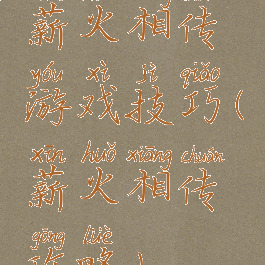 薪火相传
yóu xì jì qiǎo
游戏技巧(
xīn huǒ xiāng chuán
薪火相传
gōng lüè
攻略)